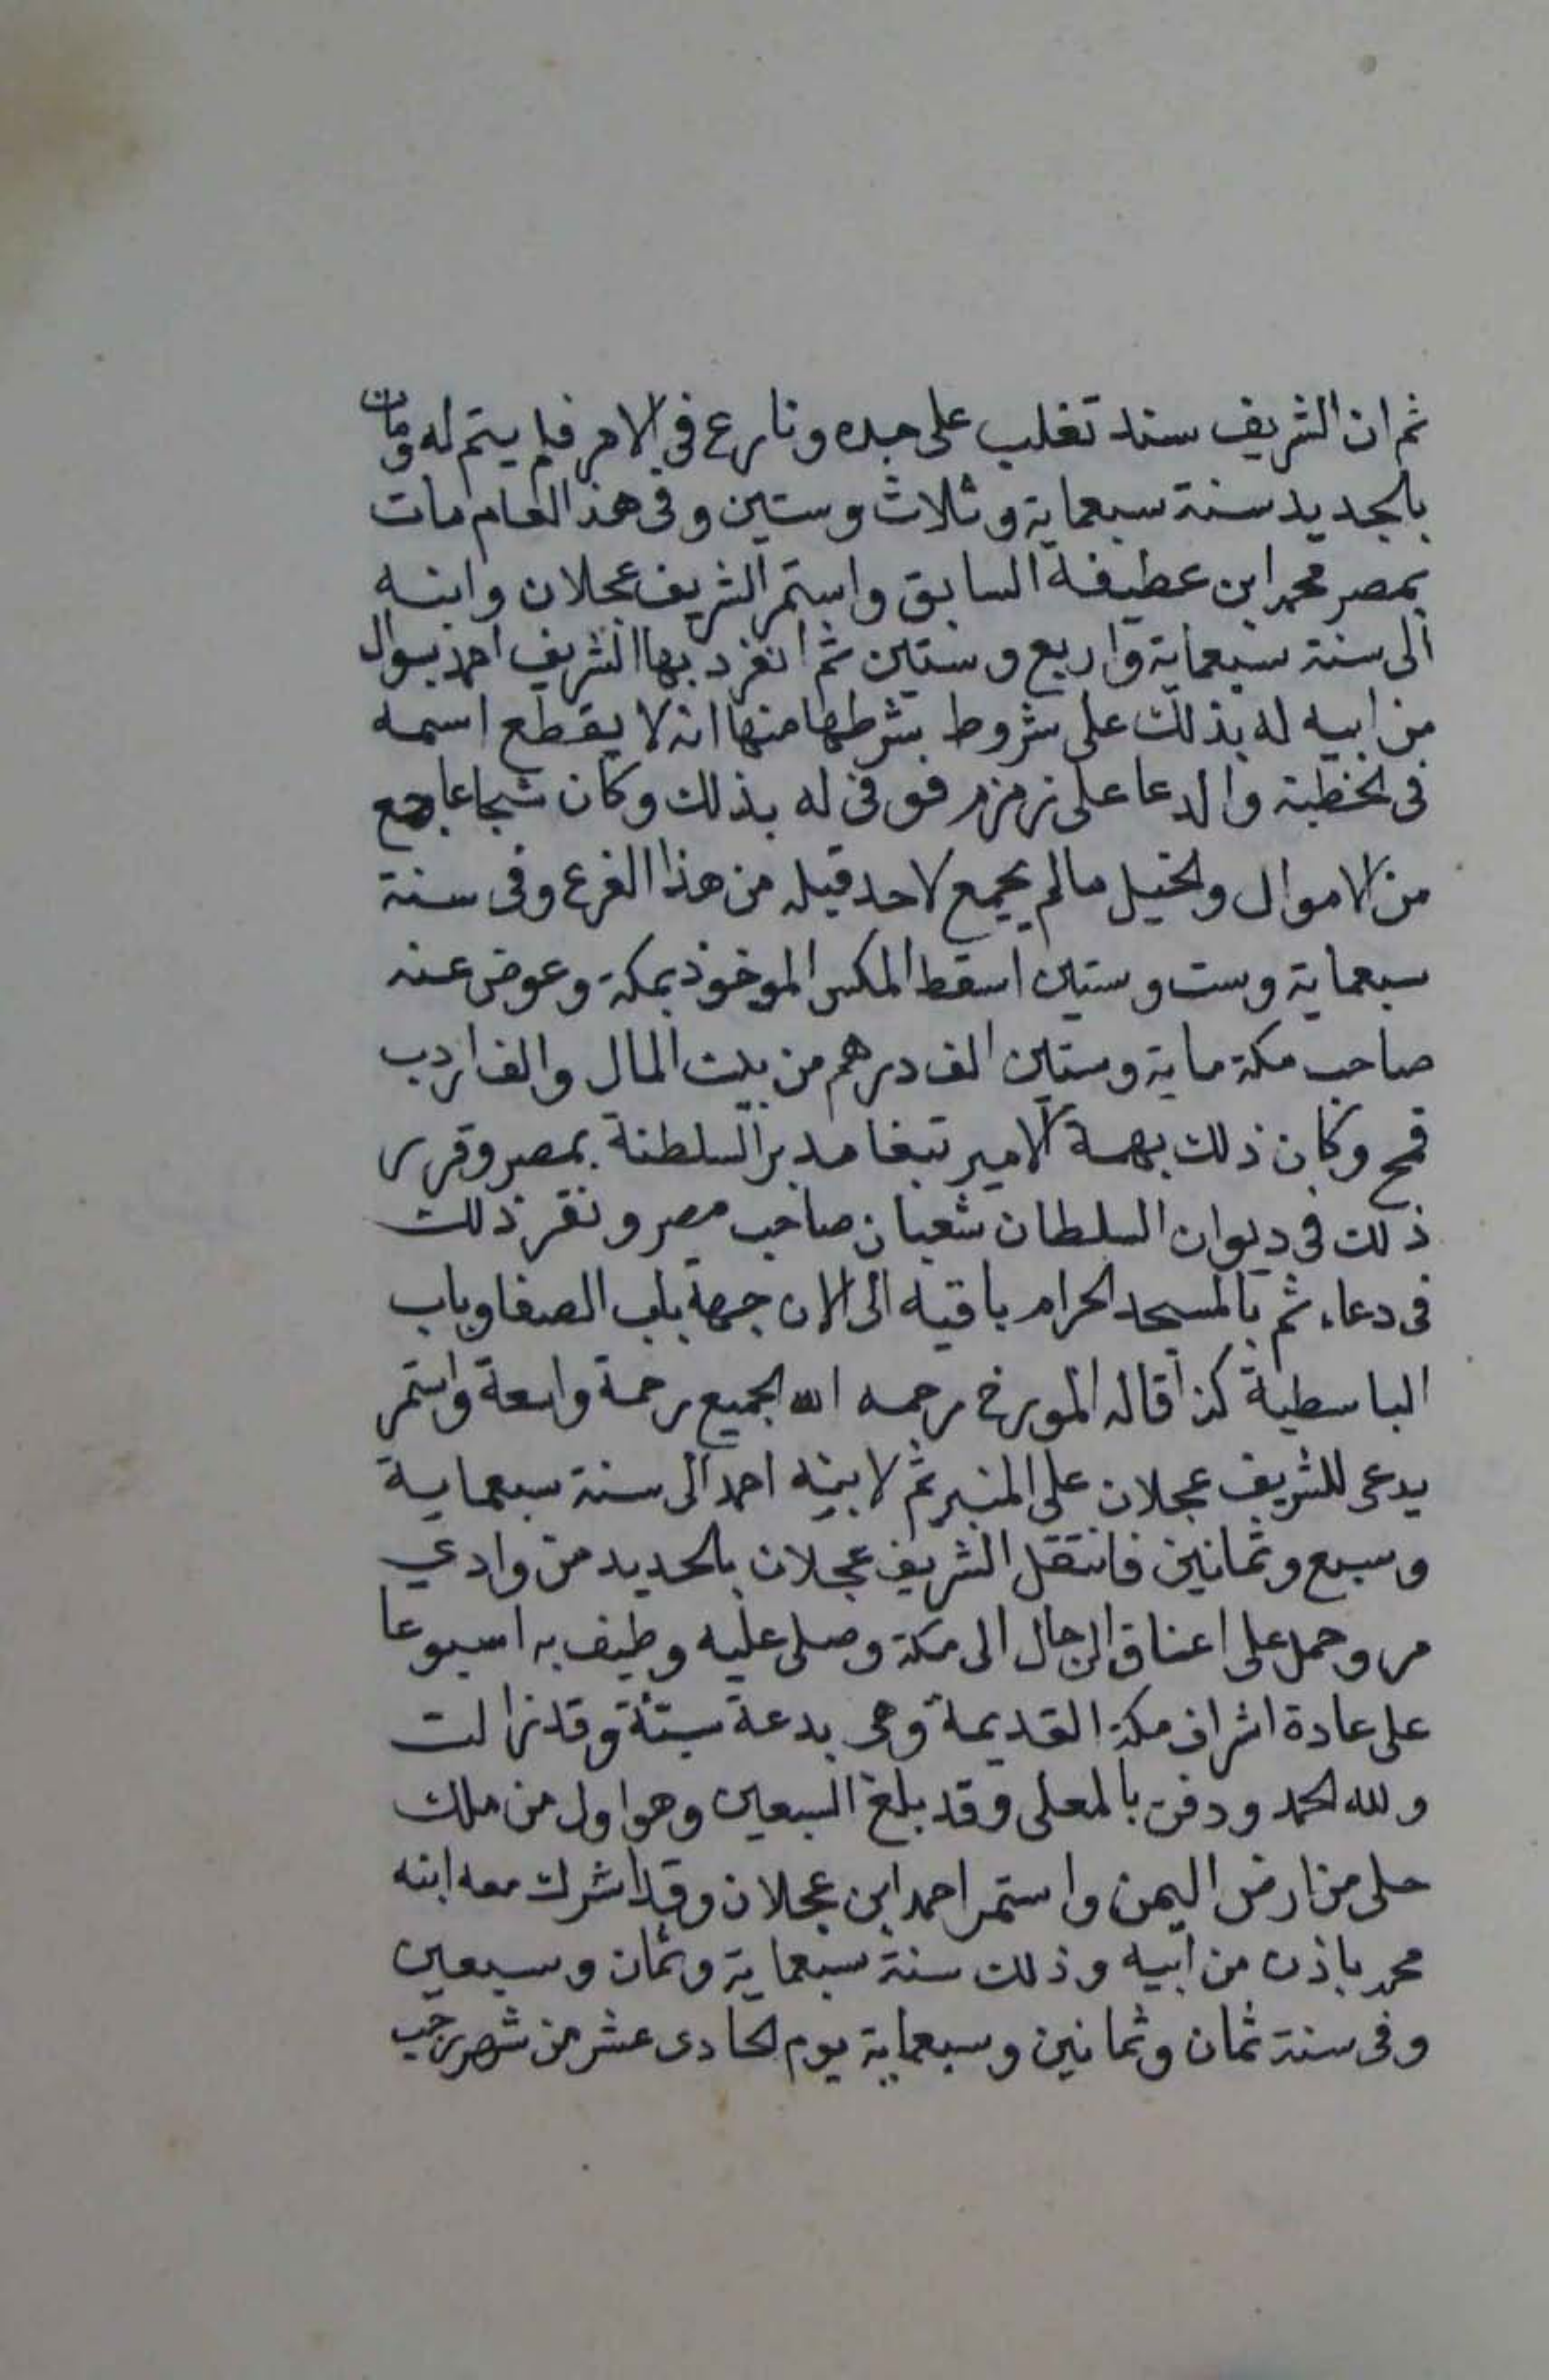 ثم ان الشريف سند تغلب على جده ونارع في الامر فلم يتم له ومات
بالجديد سنة سبعماية وثلاث وستين وفى هذ العام مات
بمصر محمد ابن عطيفة السابق واستمر الشريف عجلان وابنه
الى سنة سبعماية واربع وستين ثم انفرد بها الشريف احمد بسوال
من ابيه له بذلك على شروط شرطها منها انه لا يقطع اسمه
فى الخطبة والدعا على زمزم فوفى له بذلك وكان شجاعا جمع
من الاموال والخيل مالم يجمع لاحد قبله من هذا الفرع وفى سنة
سبعماية وست وستين اسقط المكس الموخوذ بمكة وعوض عنه
صاحب مكة ماية وستين الف درهم من بيت المال والف اردب
قمح وكان ذلك بهمة الامير تبغا مدبر السلطنة بمصر وقرر
ذلك فى ديوان السلطان شعبان صاحب مصر ونقر ذلك
فى دعاء ثم بالمسجد الحرام باقيه الى الان جهة باب الصفا وباب
الباسطية كذا قاله المورخ رحمه الله الجميع رحمة واسعة واستمر
يدعى للشريف عجلان على المنبر ثم لابنه احمد الى سنة سبعماية
وسبع وثمانين فانتقل الشريف عجلان بالحديد من وادي
مر وحمل على اعناق الرجال الى مكة وصلى عليه وطيف به اسبوعا
على عادة اشراف مكة القديمة وهى بدعة سيئة وقد زالت
ولله الحمد ودفن بالمعلى وقد بلغ السبعين وهو اول من ملك
حلى من ارض اليمن واستمر احمد ابن عجلان وقد اشرك معه ابنه
محمد باذن من ابيه وذلك سنة سبعماية وثمان وسبعين
وفى سنة ثمان وثمانين وسبعماية يوم الحادى عشر من شهر رجب